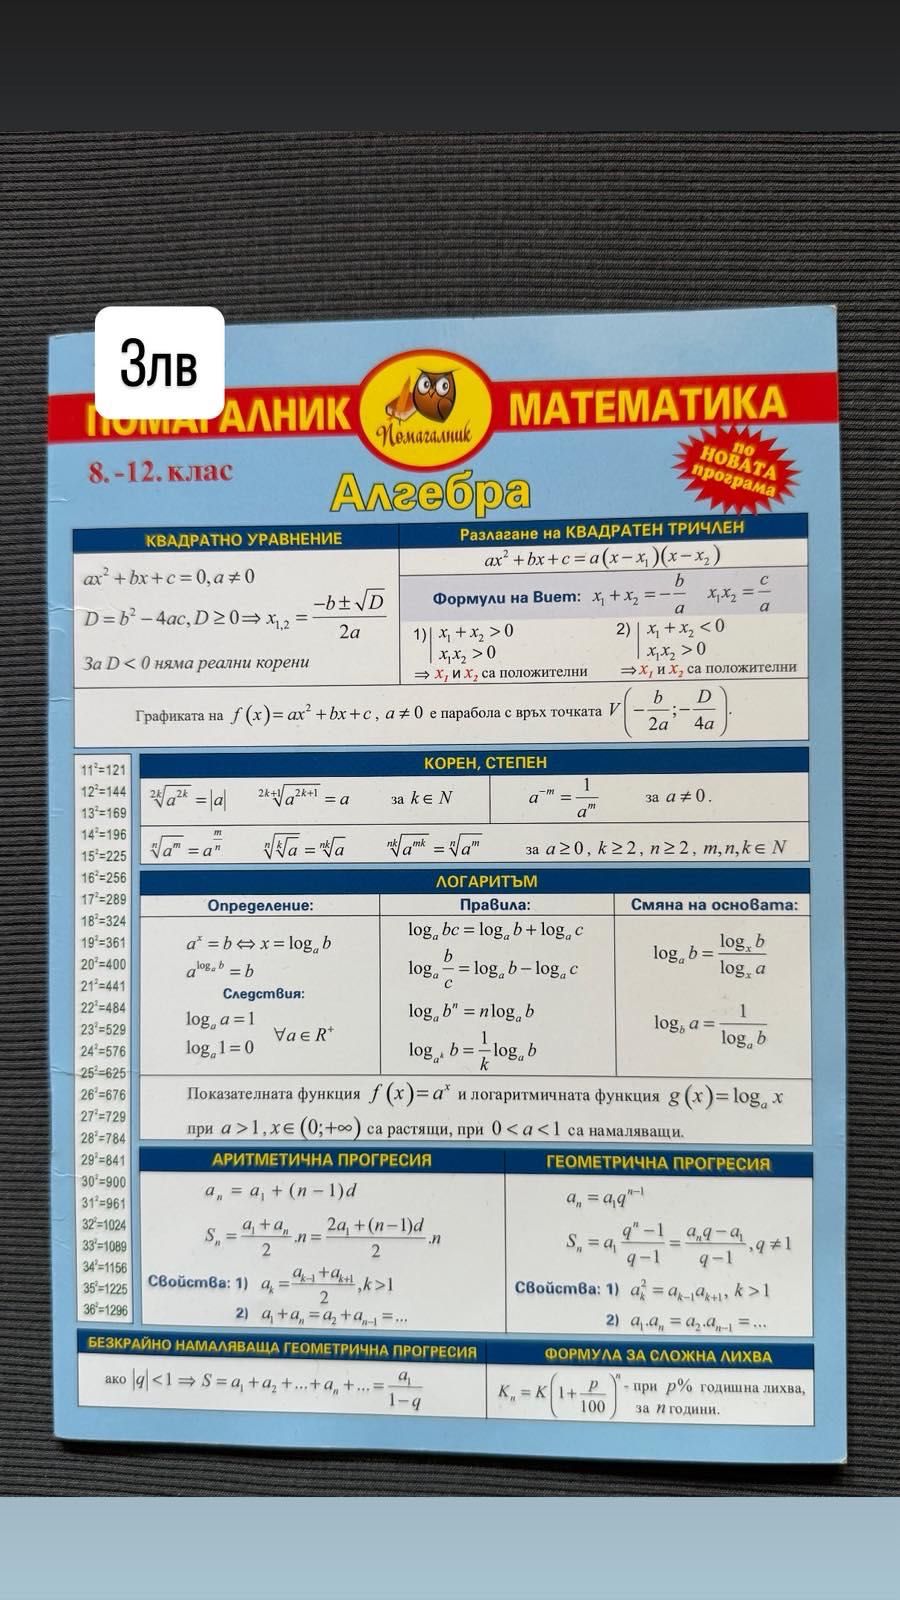 3лв
ПОМАГАЛНИК
Помагалник
МАТЕМАТИКА
8.-12. клас
Алгебра
по
НОВАТА
програма
КВАДРАТНО УРАВНЕНИЕ
ax² + bx + c = 0, a ≠ 0
D = b² − 4ac, D ≥ 0 ⇒ x₁,₂ = (−b ± √D)/(2a)
За D < 0 няма реални корени
Разлагане на КВАДРАТЕН ТРИЧЛЕН
ax² + bx + c = a(x − x₁)(x − x₂)
Формули на Виет: x₁ + x₂ = −b/a x₁x₂ = c/a
1) | x₁ + x₂ > 0
| x₁x₂ > 0
⇒ x₁ и x₂ са положителни
2) | x₁ + x₂ < 0
| x₁x₂ > 0
⇒ x₁ и x₂ са положителни
Графиката на f(x) = ax² + bx + c, a ≠ 0 е парабола с връх точката V(−b/2a; −D/4a).
11²=121
12²=144
13²=169
14²=196
15²=225
16²=256
17²=289
18²=324
19²=361
20²=400
21²=441
22²=484
23²=529
24²=576
25²=625
26²=676
27²=729
28²=784
29²=841
30²=900
31²=961
32²=1024
33²=1089
34²=1156
35²=1225
36²=1296
КОРЕН, СТЕПЕН
²ᵏ√(a²ᵏ) = |a| ²ᵏ⁺¹√(a²ᵏ⁺¹) = a за k ∈ N a⁻ᵐ = 1/aᵐ за a ≠ 0.
ⁿ√(aᵐ) = a^(m/n) ⁿ√(ᵏ√a) = ⁿᵏ√a ⁿᵏ√(aᵐᵏ) = ⁿ√(aᵐ) за a ≥ 0, k ≥ 2, n ≥ 2, m,n,k ∈ N
ЛОГАРИТЪМ
Определение:
aˣ = b ⇔ x = logₐ b
a^(logₐ b) = b
Следствия:
logₐ a = 1
logₐ 1 = 0 ∀a ∈ R⁺
Правила:
logₐ bc = logₐ b + logₐ c
logₐ b/c = logₐ b − logₐ c
logₐ bⁿ = n logₐ b
log_(aᵏ) b = 1/k logₐ b
Смяна на основата:
logₐ b = logₓ b / logₓ a
log_b a = 1 / logₐ b
Показателната функция f(x) = aˣ и логаритмичната функция g(x) = logₐ x
при a > 1, x ∈ (0; +∞) са растящи, при 0 < a < 1 са намаляващи.
АРИТМЕТИЧНА ПРОГРЕСИЯ
aₙ = a₁ + (n − 1)d
Sₙ = (a₁ + aₙ)/2 .n = (2a₁ + (n−1)d)/2 .n
Свойства: 1) aₖ = (aₖ₋₁ + aₖ₊₁)/2, k > 1
2) a₁ + aₙ = a₂ + aₙ₋₁ = ...
ГЕОМЕТРИЧНА ПРОГРЕСИЯ
aₙ = a₁qⁿ⁻¹
Sₙ = a₁ (qⁿ − 1)/(q − 1) = (aₙq − a₁)/(q − 1), q ≠ 1
Свойства: 1) aₖ² = aₖ₋₁aₖ₊₁, k > 1
2) a₁.aₙ = a₂.aₙ₋₁ = ...
БЕЗКРАЙНО НАМАЛЯВАЩА ГЕОМЕТРИЧНА ПРОГРЕСИЯ
ако |q| < 1 ⇒ S = a₁ + a₂ + ... + aₙ + ... = a₁/(1−q)
ФОРМУЛА ЗА СЛОЖНА ЛИХВА
Kₙ = K(1 + p/100)ⁿ - при p% годишна лихва,
за n години.